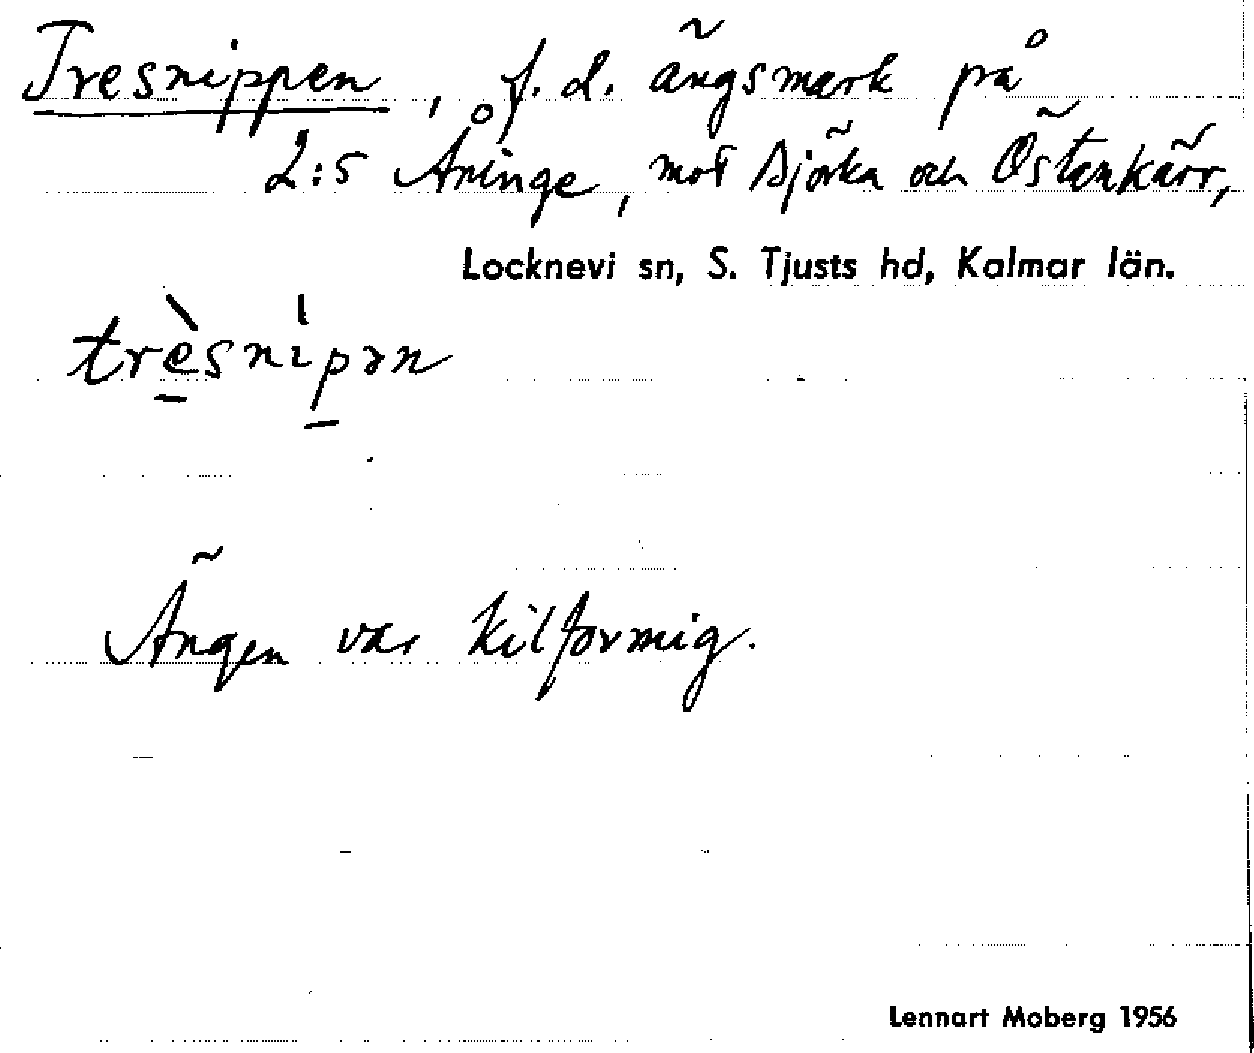 Tresnippen, f. d. ängsmark på
2:5 Åninge, mot Djörka och Östenkärr,
Locknevi sn, S. Tjusts hd, Kalmar län.
trèsnìpən
Ängen var kilformig.
Lennart Moberg 1956